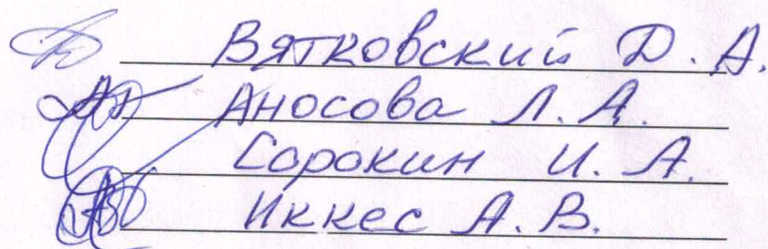 Вятковский Д. А.
Аносова Л. А.
Сорокин И. А.
Иккес А. В.